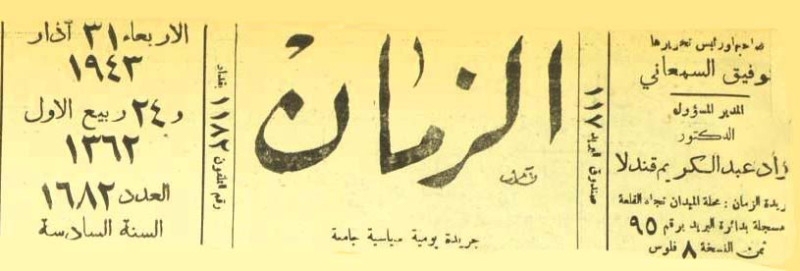 صاحبها ورئيس تحريرها
توفيق السمعاني
المدير المسؤول
الدكتور
عبدالكريم قندلا
جريدة الزمان : محلة الميدان تجاه القلعة
مسجلة بدائرة البريد برقم ٩٥
ثمن النسخة ٨ فلوس
صندوق البريد ١١٧
الزمان
جريدة يومية سياسية جامعة
رقم التلفون ١١٨٢ بغداد
الاربعاء ٣١ آذار
١٩٤٣
و ٢٤ ربيع الاول
١٣٦٢
العدد ١٦٨٢
السنة السادسة